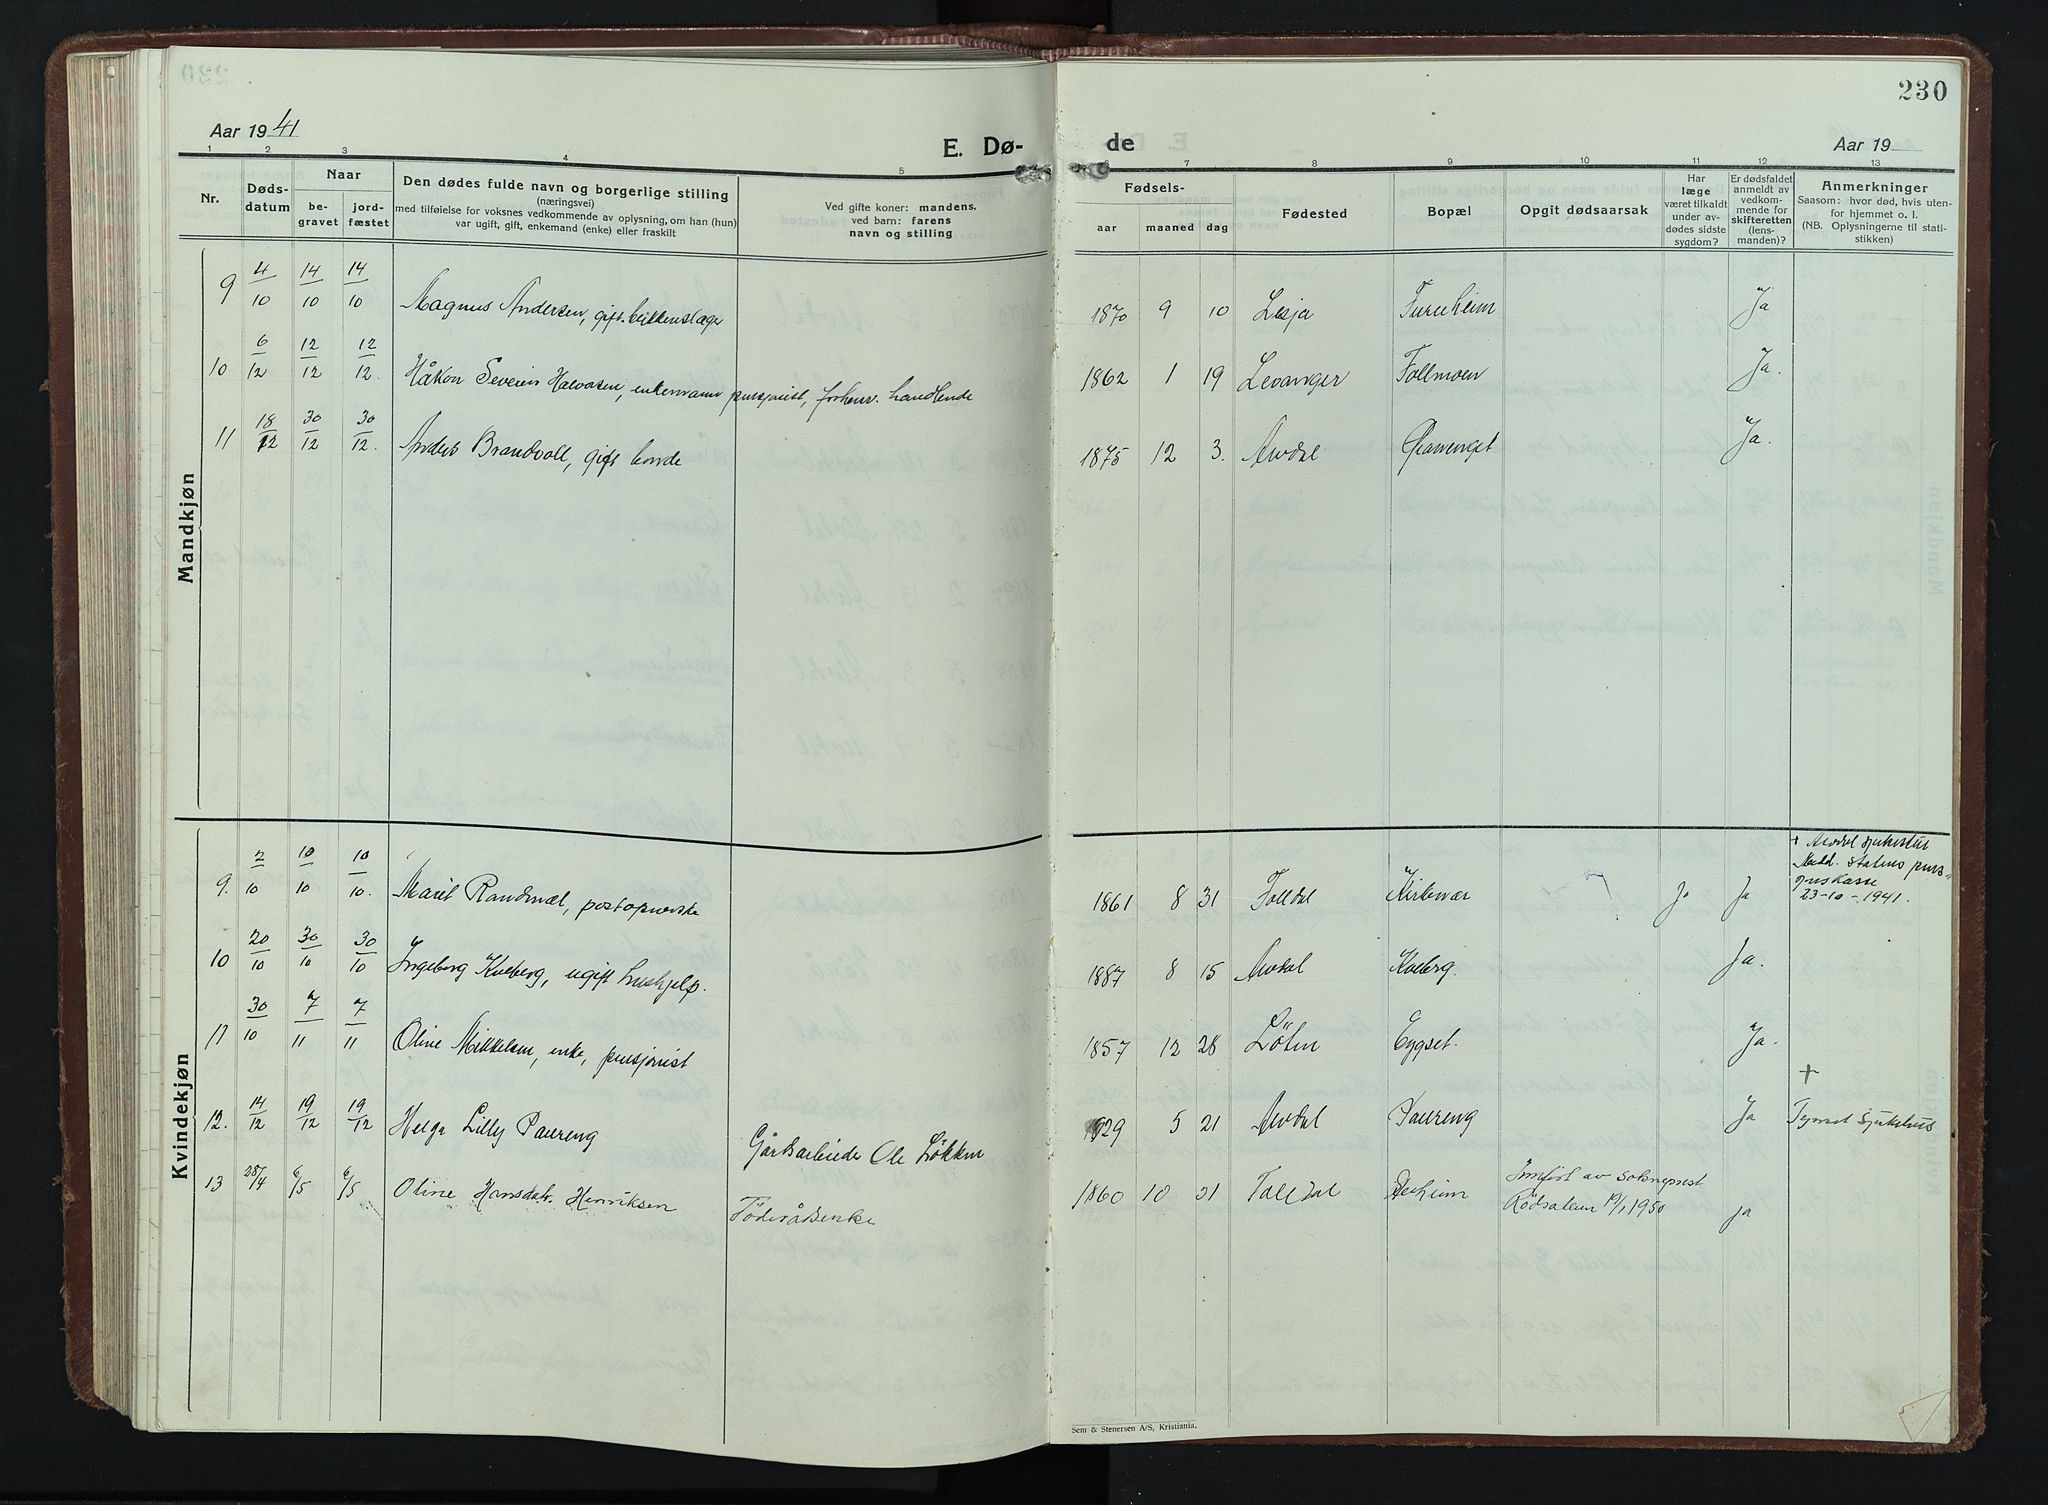 230
Aar 1941
E. Dø-
de
Aar 19
1 2 3 4 5 6 7 8 9 10 11 12 13
Nr.
Døds-
datum
Naar
be-
gravet
jord-
fæstet
Den dødes fulde navn og borgerlige stilling
(næringsvei)
med tilføielse for voksnes vedkommende av oplysning, om han (hun)
var ugift, gift, enkemand (enke) eller fraskilt
Ved gifte koner: mandens,
ved barn: farens
navn og stilling
Fødsels-
aar maaned dag
Fødested
Bopæl
Opgit dødsaarsak
Har
læge
været tilkaldt
under av-
dødes sidste
sygdom?
Er dødsfaldet
anmeldt av
vedkom-
mende for
skifteretten
(lens-
manden)?
Anmerkninger
Saasom: hvor død, hvis uten-
for hjemmet o. l.
(NB. Oplysningerne til stati-
stikken)
Mandkjøn
9 4/10 14/10 14/10 Magnus Andersen, gift blikkenslager 1870 9 10 Lesja Furuheim Ja
10 6/12 12/12 12/12. Håkon Severin Halvorsen, enkemann pensjonist, forhenv. handlende 1862 1 19 Levanger Follmoen Ja.
11 18/12 30/12 30/12. Anders Brandvoll, gift bonde 1875 12 3. Alvdal Ja.
Kvindekjøn
9. 2/10 10/10 10/10. Marit Randmæl, postopnerske 1861 8 31 Folldal Kirkevær Ja Ja + Alvdal sjukestue
Medd. Statens pens-
jonskasse
23-10-1941.
10 20/10 30/10 30/10 Ingeborg Kveberg, ugift hushjelp. 1887 8 15 Alvdal Kveberg. Ja.
11 30/10 7/11 7/11 Oline Mikkelsen, enke, pensjonist 1857 12 28 Löten Eggset. Ja.
12. 14/12 19/12 19/12 Helga Lilly Paureng Gårdsarbeider Ole Løkken 1929 5 21 Alvdal Paureng Ja +
Tynset Sjukehus
13 28/4 6/5 6/5 Oline Hansdatr. Henriksen Föderådsenke 1860 10 31 Folldal Innfört av sokneprest
Rödsalem 19/1 1950 ja
Sem & Stenersen A/S, Kristiania.